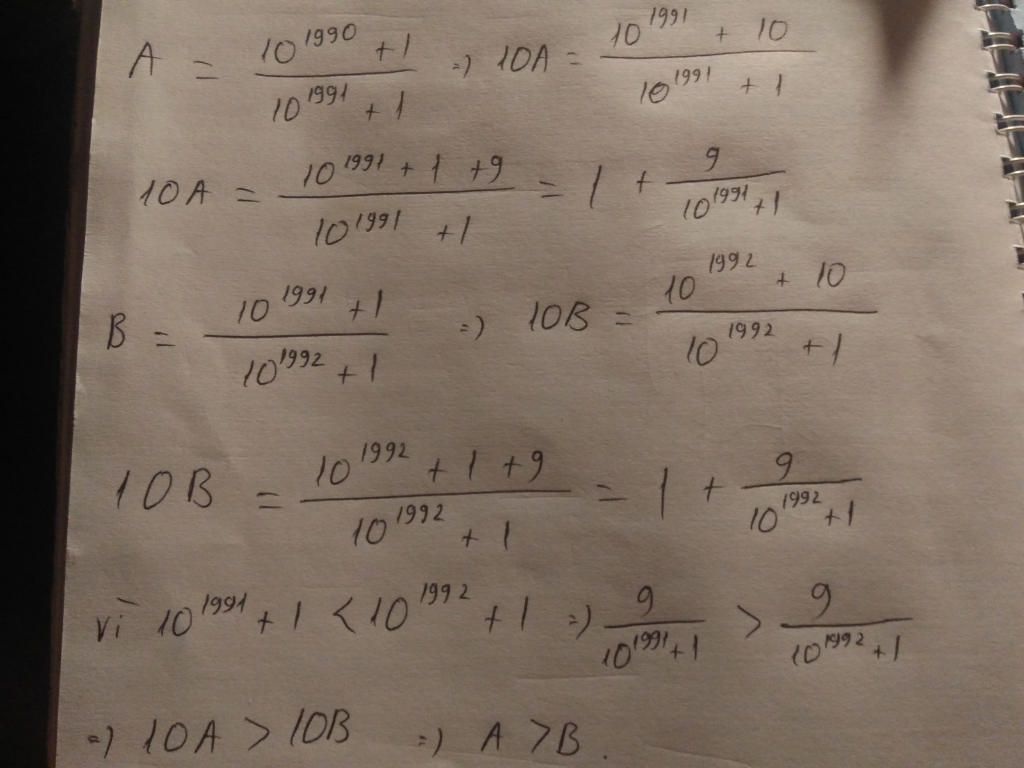 A = (10^1990 + 1)/(10^1991 + 1) => 10A = (10^1991 + 10)/(10^1991 + 1)
10A = (10^1991 + 1 + 9)/(10^1991 + 1) = 1 + 9/(10^1991 + 1)
B = (10^1991 + 1)/(10^1992 + 1) => 10B = (10^1992 + 10)/(10^1992 + 1)
10B = (10^1992 + 1 + 9)/(10^1992 + 1) = 1 + 9/(10^1992 + 1)
vì 10^1991 + 1 < 10^1992 + 1 => 9/(10^1991 + 1) > 9/(10^1992 + 1)
=> 10A > 10B => A > B.